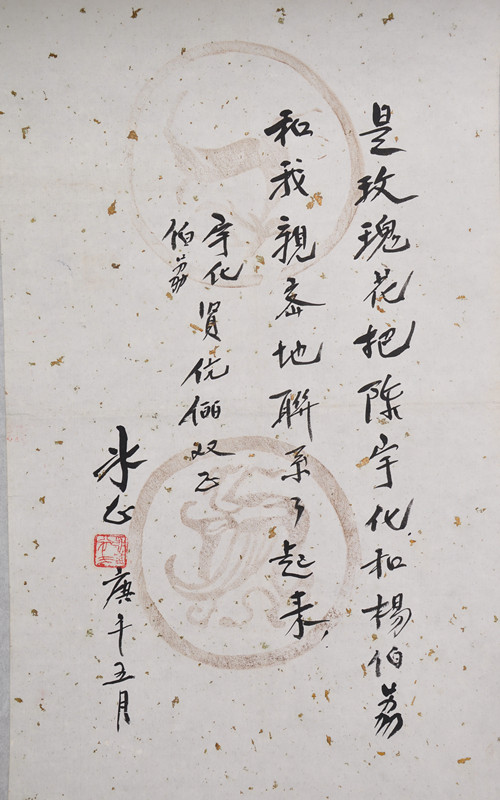 是玫瑰花把陈宇化和杨伯荔
和我親密地聯系了起来,
宇化
伯荔
賢伉儷双正
冰心
庚午五月